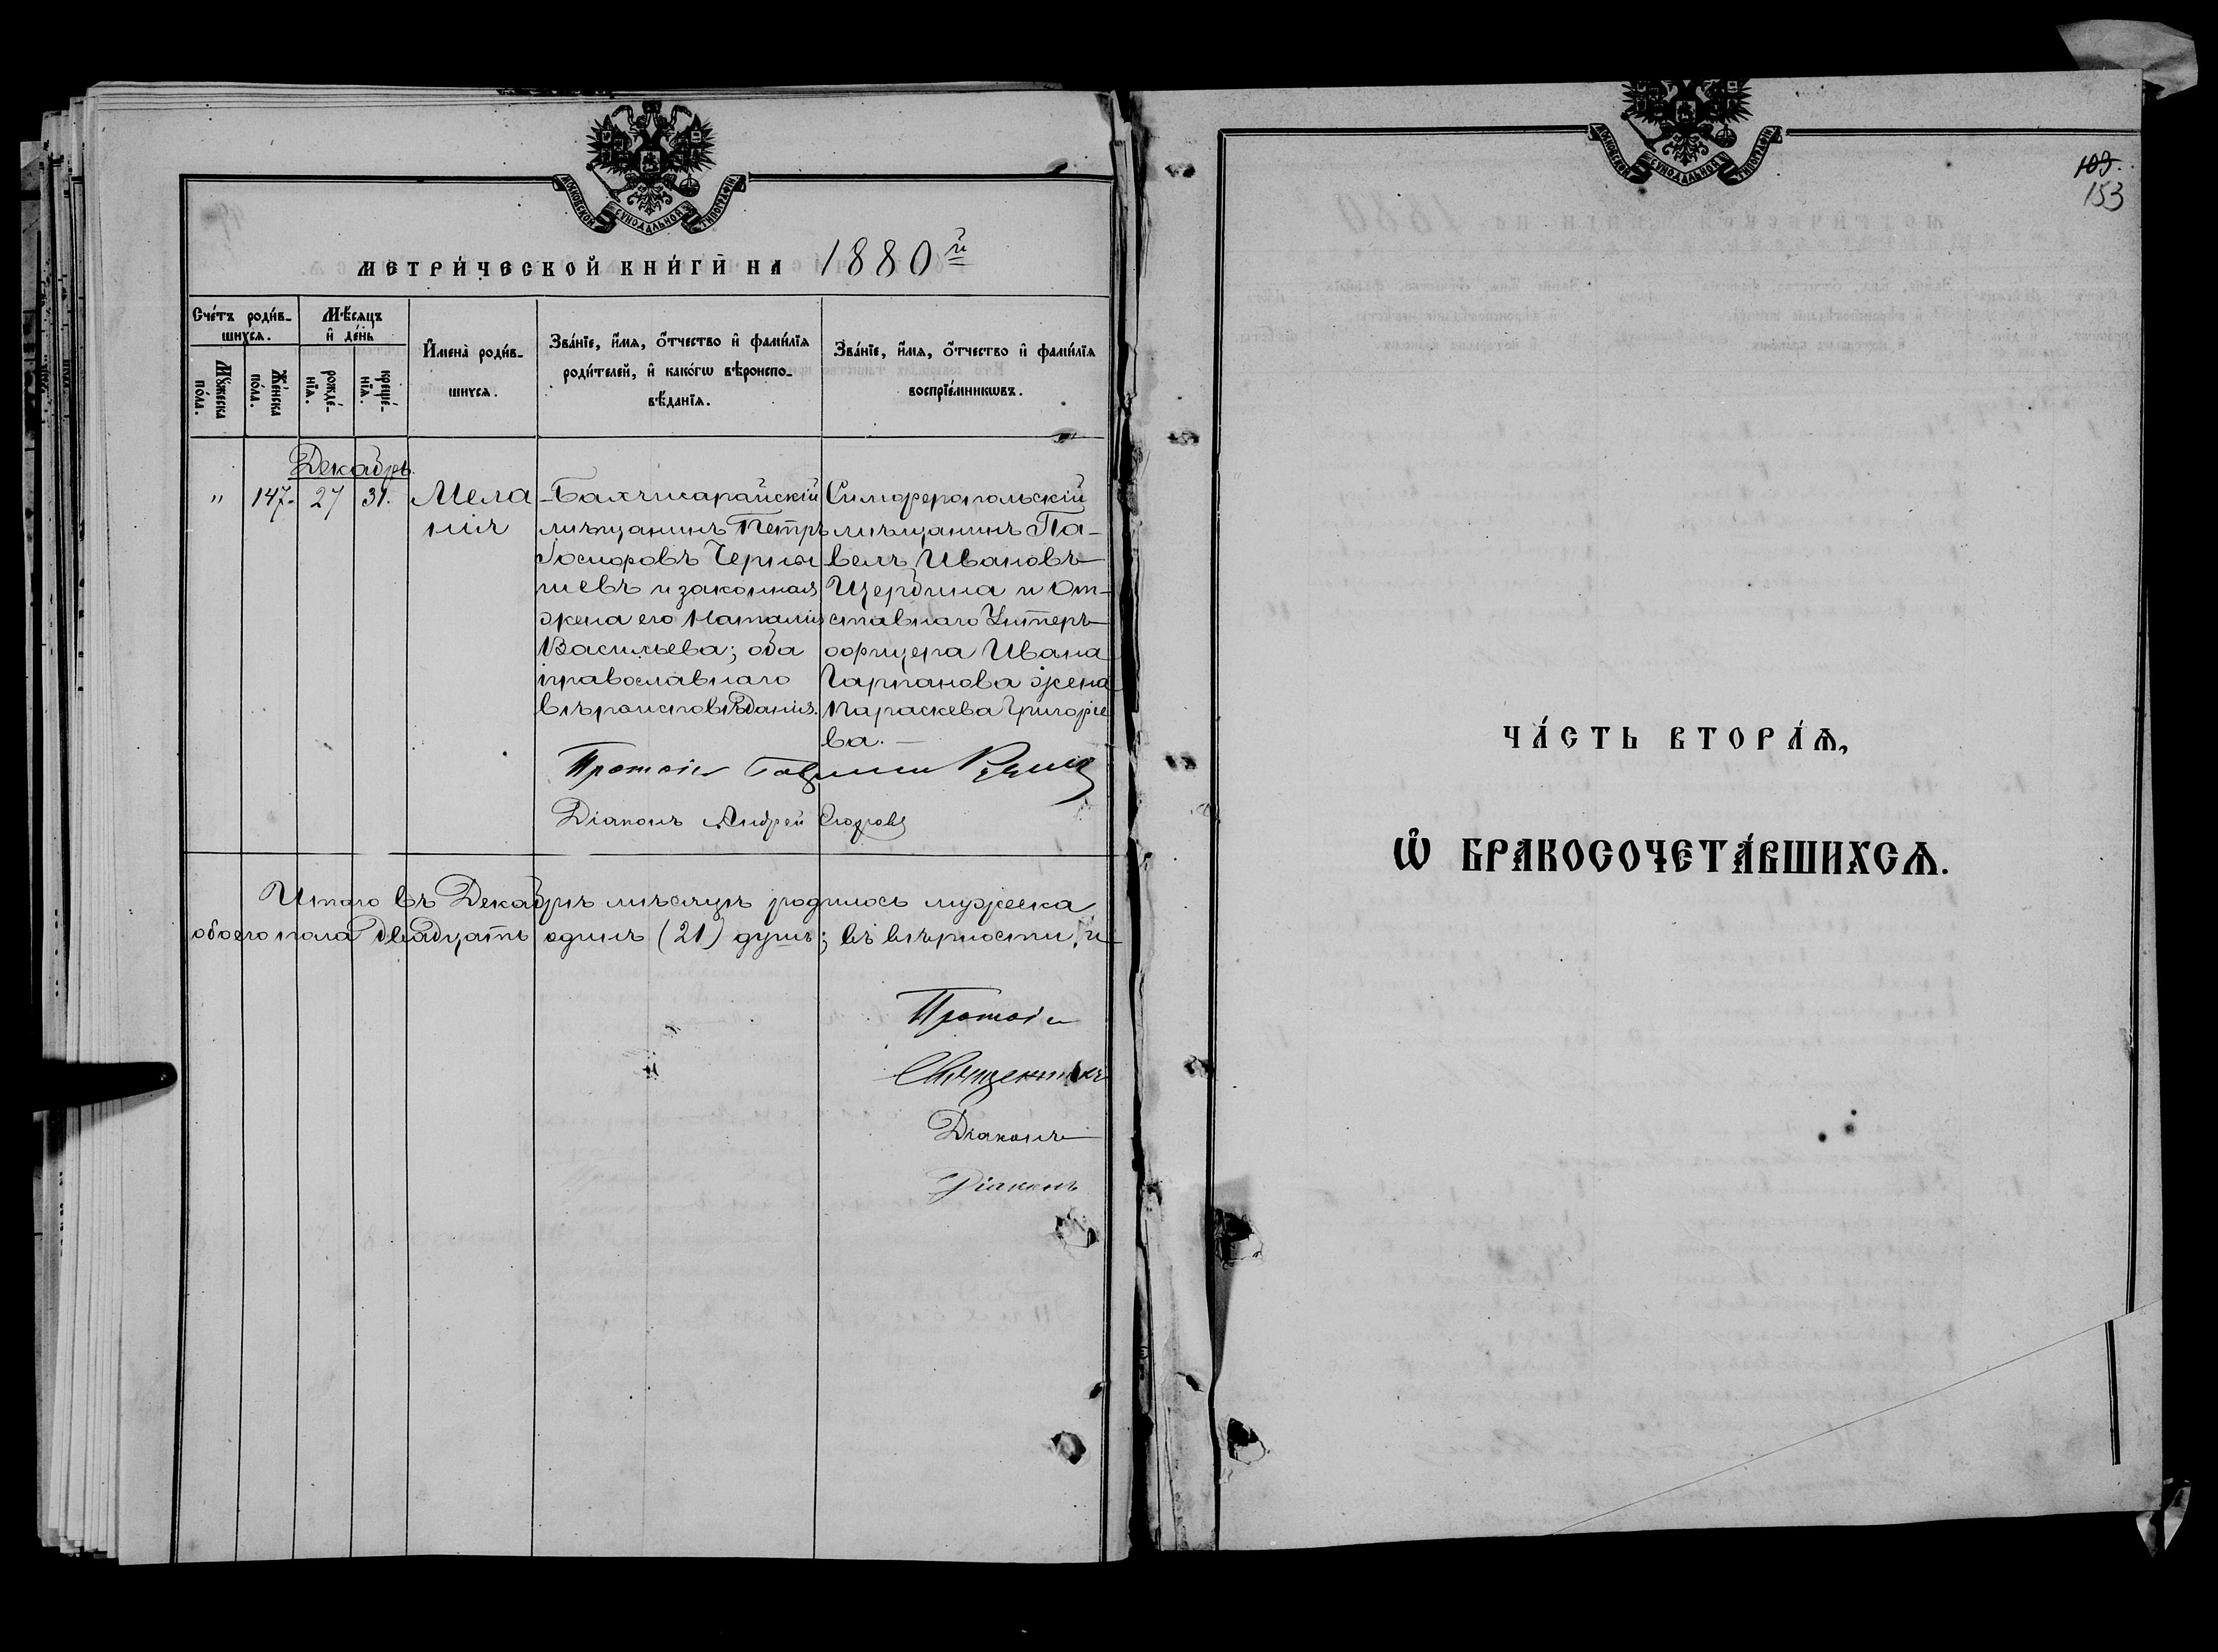 МОСКОВСКОЙ СѴНОДАЛЬНОЙ ТИПОГРАФІИ
МЕТРИ́ЧЕСКОЙ КНИ́ГИ НА 1880й
Сче́тъ роди́в-
шихсѧ.
Мѣ́сѧцъ
и҆ де́нь
Мꙋ́жеска
по́ла.
Же́нска
по́ла.
рожде́-
нїѧ.
креще́-
нїѧ.
И҆мена̀ роди́в-
шихсѧ.
Зва́нїе, и҆́мѧ, ѻ҆́тчество и҆ фами́лїѧ
роди́телей, и҆ како́гѡ вѣроиспо-
вѣ́данїѧ.
Зва́нїе, и҆́мѧ, ѻ҆́тчество и҆ фами́лїѧ
воспрїе́мникѡвъ.
Декабрь.
" 147. 27 31.
Мела
нія
Бахчисарайскій
мѣщанинъ Петръ
Іосифовъ Черны
шевъ и законная
жена его Наталія
Васильева; оба
православнаго
вѣроисповѣданія.
Симферопольскій
мѣщанинъ Па-
велъ Ивановъ
Щербина и От-
ставнаго Унтеръ
офицера Ивана
жена
Параскева Григорье
ва.—
Протоіе
Діаконъ Андрей
Итого въ Декабрѣ мѣсяцѣ родилось мужеска
обоего пола двадцать одинъ (21) душъ; въ вѣрности, и-
Протоіе
Священникъ
Діаконъ
Діаконъ
МОСКОВСКОЙ СѴНОДАЛЬНОЙ ТИПОГРАФІИ
109.
153
ЧА́СТЬ ВТОРА́Ѧ,
Ѡ҆ БРАКОСОЧЕТА́ВШИХСѦ.